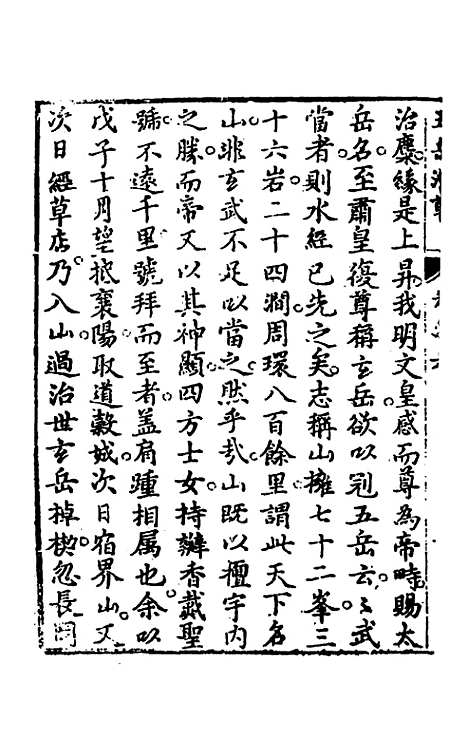 五岳游草
治麋緣是上昇我明文皇感而尊為帝時賜太
岳名至肅皇復尊稱玄岳欲以冠五岳云云武
當者則水經已先之矣志稱山擁七十二峯三
十六岩二十四澗周環八百餘里謂此天下名
山非玄武不足以當之然乎哉山既以擅宇内
之勝而帝又以其神顯四方士女持瓣香戴聖
號不遠千里號拜而至者蓋肩踵相属也余以
戊子十月望抵襄陽取道穀城次日宿界山又
次日經草店乃入山過治世玄岳棹楔忽長